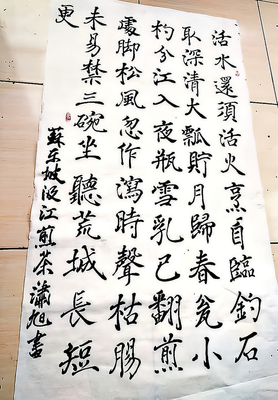 活水還須活火烹自臨釣石
取深清大瓢貯月歸春瓮小
杓分江入夜瓶雪乳已翻煎
處脚松風忽作瀉時聲枯腸
未易禁三碗坐聽荒城長短
更
蘇東坡汲江煎茶瀟旭書